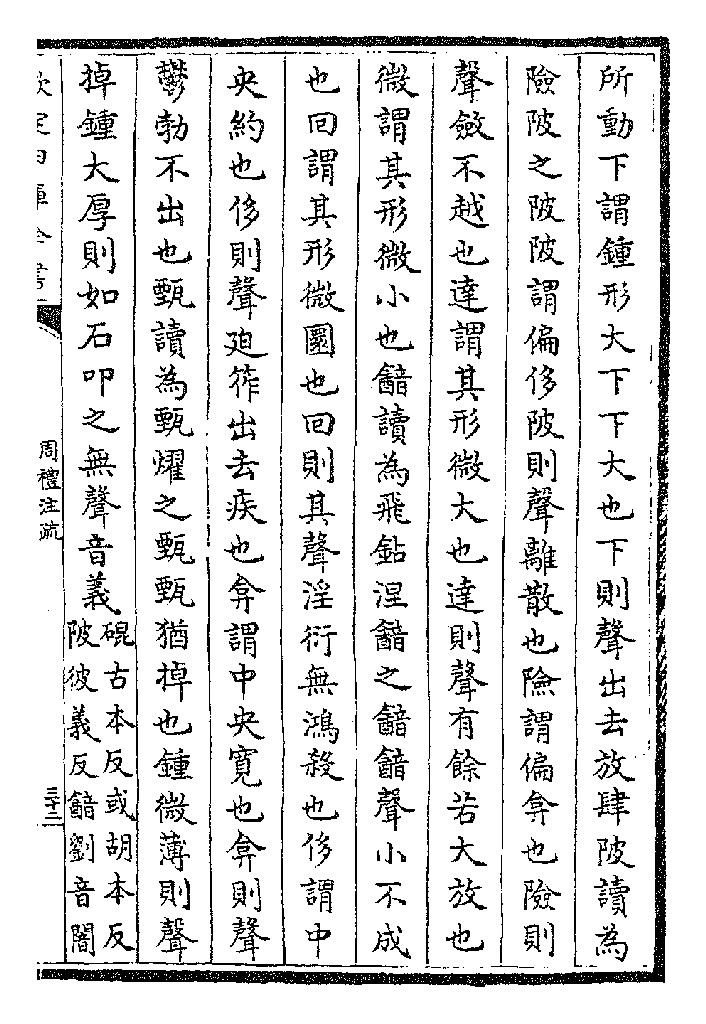 所動下謂鍾形大下下大也下則聲出去放肆陂讀為
險陂之陂陂謂偏侈陂則聲離散也險謂偏弇也險則
聲斂不越也達謂其形微大也達則聲有餘若大放也
微謂其形微小也韽讀為飛鉆涅韽之韽韽聲小不成
也回謂其形微圜也回則其聲淫衍無鴻殺也侈謂中
央約也侈則聲迫筰出去疾也弇謂中央寛也弇則聲
鬱勃不出也甄讀為甄燿之甄甄猶掉也鍾微薄則聲
掉鍾大厚則如石叩之無聲音義
硍古本反或胡本反
陂彼義反韽劉音闇
欽定四庫全書
周禮注疏
三十三